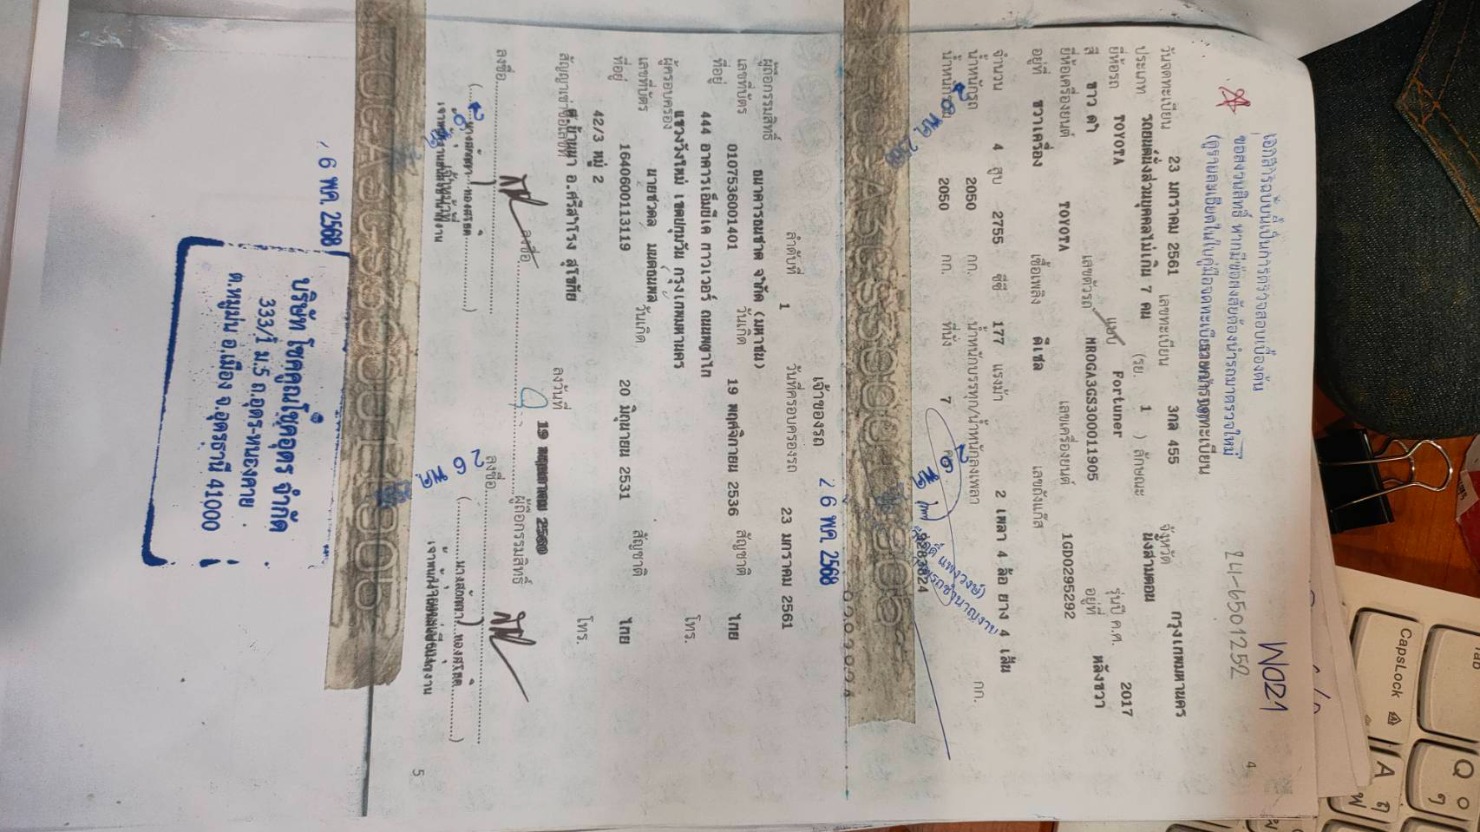 W021
2ฒ-6501252
4
เอกสารฉบับนี้เป็นการตรวจสอบเบื้องต้น
ขอสงวนสิทธิ์ หากมีข้อสงสัยต้องนำรถมาตรวจใหม่
(ดูรายละเอียดในใบคู่มือจดทะเบียน
รายการจดทะเบียน
วันจดทะเบียน 23 มกราคม 2561 เลขทะเบียน 3กล 455 จังหวัด กรุงเทพมหานคร
ประเภท รถยนต์นั่งส่วนบุคคลไม่เกิน 7 คน (รย. 1 ) ลักษณะ นั่งสามตอน
ยี่ห้อรถ TOYOTA แบบ Fortuner รุ่นปี ค.ศ. 2017
สี ขาว ดำ เลขตัวรถ MR0GA3GS300011905 อยู่ที่ หลังขวา
ยี่ห้อเครื่องยนต์ TOYOTA เลขเครื่องยนต์ 1GD0295292
อยู่ที่ ขวาเครื่อง เชื้อเพลิง ดีเซล เลขถังแก๊ส
จำนวน 4 สูบ 2755 ซีซี 177 แรงม้า 2 เพลา 4 ล้อ ยาง 4 เส้น
น้ำหนักรถ 2050 กก. น้ำหนักบรรทุก/น้ำหนักลงเพลา กก.
2050 กก. ที่นั่ง 7
26 พค. 2568
เจ้าของรถ
ลำดับที่ 1 วันที่ครอบครองรถ 23 มกราคม 2561
ผู้ถือกรรมสิทธิ์ ธนาคารธนชาต จำกัด (มหาชน)
เลขที่บัตร 0107536001401 วันเกิด 19 พฤศจิกายน 2536 สัญชาติ ไทย
ที่อยู่ 444 อาคารเอ็มบีเค ทาวเวอร์ ถนนพญาไท
แขวงวังใหม่ เขตปทุมวัน กรุงเทพมหานคร โทร.
ผู้ครอบครอง นายชวดล
เลขที่บัตร 1640600113119 วันเกิด 20 มิถุนายน 2531 สัญชาติ ไทย
ที่อยู่ 42/3 หมู่ 2
ต.บ้านนา อ.ศรีสำโรง สุโขทัย โทร.
สัญญาเช่าซื้อเลขที่ ลงวันที่
ลงชื่อ ผู้ถือกรรมสิทธิ์
ลงชื่อ ลงชื่อ
5
26 พค. 2568
บริษัท โชคคูณโชคอุดร จำกัด
333/1 ม.5 ถ.อุดร-หนองคาย
ต.หมูม่น อ.เมือง จ.อุดรธานี 41000
Tab
CapsLock
Q
A